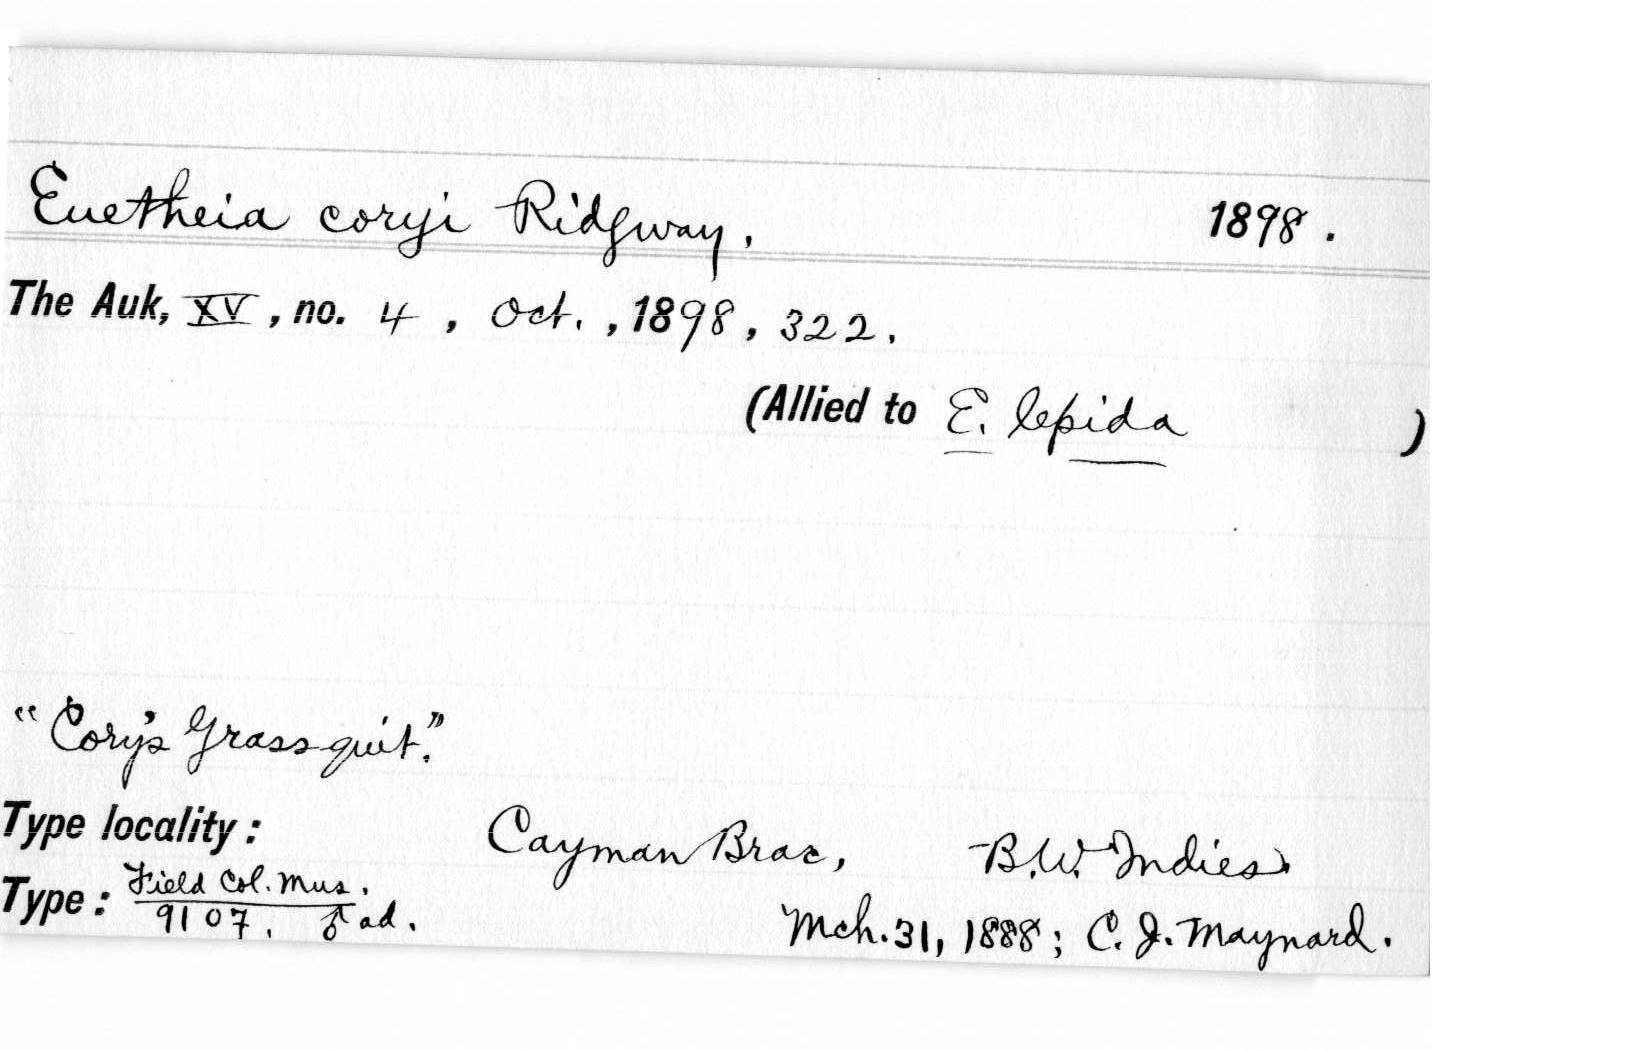 Euetheia coryi Ridgway. 1898.
The Auk, XV, no. 4, Oct., 1898, 322.
(Allied to E. lepida )
"Cory's Grassquit."
Type locality: Cayman Brac, B.W. Indies.
Type: Field Col. Mus.
9107. ♂ ad. Mch. 31, 1888; C. J. Maynard.